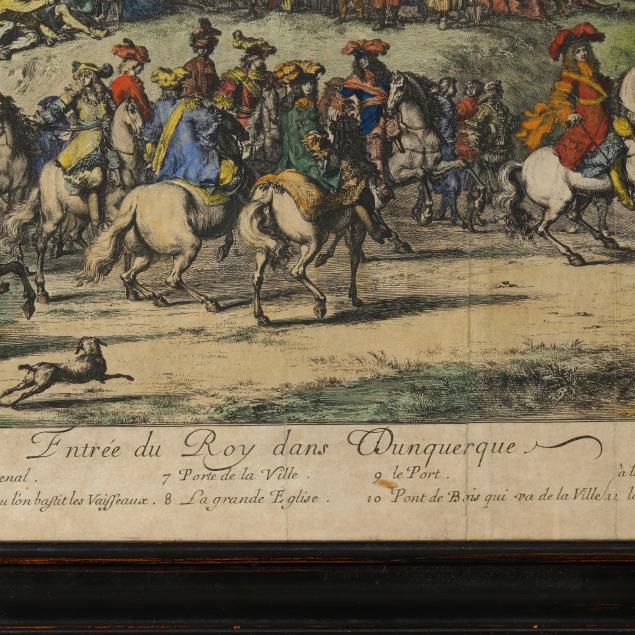 Entrée du Roy dans Dunquerque
enal. 7 Porte de la Ville. 9 le Port. à l
u l'on bastit les Vaisseaux. 8 La grande Eglise. 10 Pont de Bois qui va de la Ville 11 l